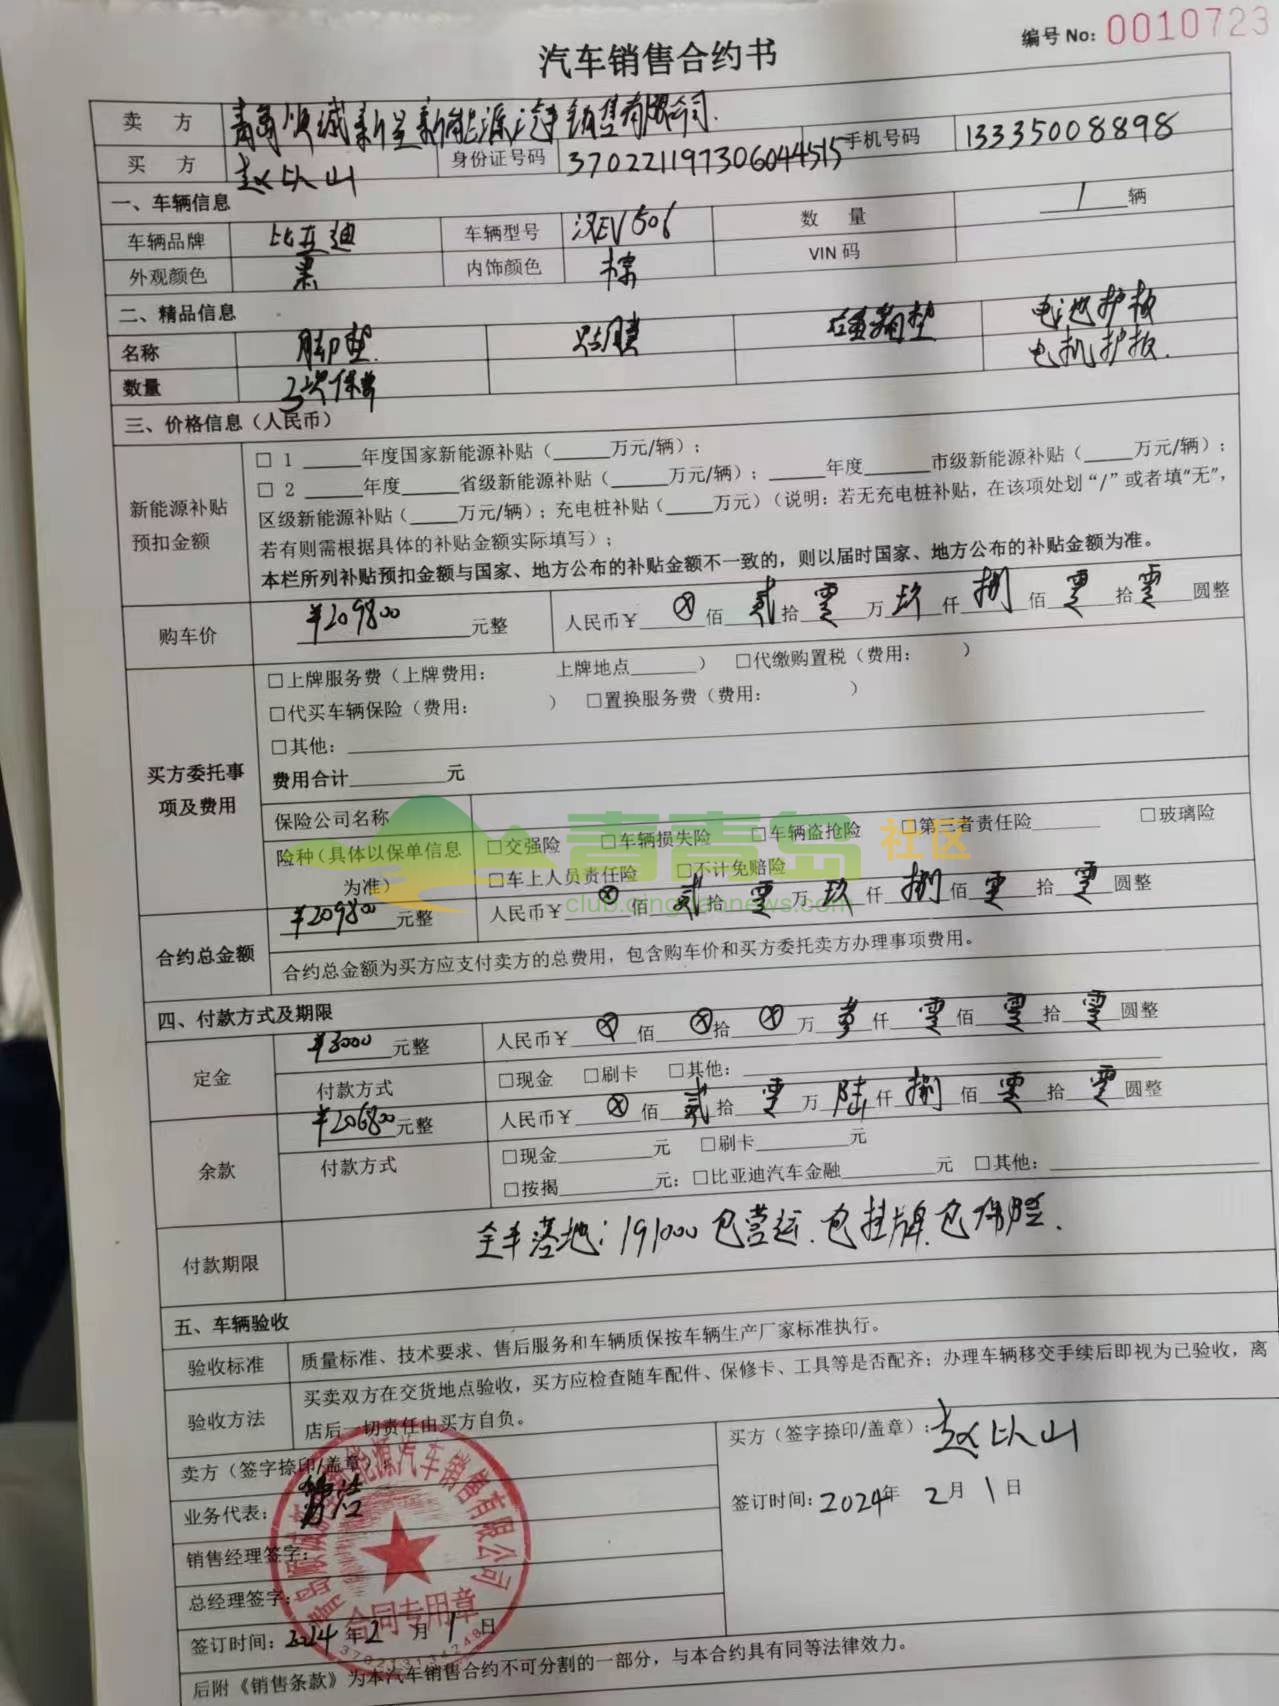 汽车销售合约书
编号 No: 0010723
卖 方 青岛顺诚新星新能源汽车销售有限公司.
买 方 赵以山 身份证号码 370221197306044515 手机号码 13335008898
一、车辆信息
车辆品牌 比亚迪 车辆型号 汉EV506 数 量 1 辆
外观颜色 黑 内饰颜色 棕 VIN 码
二、精品信息
名称 脚垫. 贴膜 后备箱垫 电池护板 电机护板.
数量 3次保养
三、价格信息（人民币）
新能源补贴预扣金额
□ 1 ______年度国家新能源补贴（______万元/辆）；
□ 2 ______年度______省级新能源补贴（______万元/辆）；______年度______市级新能源补贴（______万元/辆）；
区级新能源补贴（_____万元/辆）；充电桩补贴（_____万元）（说明：若无充电桩补贴，在该项处划“/”或者填“无”，
若有则需根据具体的补贴金额实际填写）；
本栏所列补贴预扣金额与国家、地方公布的补贴金额不一致的，则以届时国家、地方公布的补贴金额为准。
购车价 ¥209800 元整 人民币¥ ⊗ 佰 贰 拾 零 万 玖 仟 捌 佰 零 拾 零 圆整
买方委托事项及费用
□上牌服务费（上牌费用： 上牌地点______） □代缴购置税（费用： ）
□代买车辆保险（费用： ） □置换服务费（费用： ）
□其他：
费用合计__________元
保险公司名称
险种（具体以保单信息为准） □交强险 □车辆损失险 □车辆盗抢险 □第三者责任险_______ □玻璃险
□车上人员责任险 □不计免赔险
青青岛 社区
club.qingdaonews.com
合约总金额 ¥209800 元整 人民币¥ ⊗ 佰 贰 拾 零 万 玖 仟 捌 佰 零 拾 零 圆整
合约总金额为买方应支付卖方的总费用，包含购车价和买方委托卖方办理事项费用。
四、付款方式及期限
定金 ¥3000 元整 人民币¥ ⊗ 佰 ⊗ 拾 ⊗ 万 叁 仟 零 佰 零 拾 零 圆整
付款方式 □现金 □刷卡 □其他：
余款 ¥206800 元整 人民币¥ ⊗ 佰 贰 拾 零 万 陆 仟 捌 佰 零 拾 零 圆整
付款方式 □现金__________元 □刷卡__________元
□按揭__________元；□比亚迪汽车金融__________元 □其他：
付款期限 全车落地：191000 包营运.包挂牌.包保险.
五、车辆验收
验收标准 质量标准、技术要求、售后服务和车辆质保按车辆生产厂家标准执行。
验收方法 买卖双方在交货地点验收，买方应检查随车配件、保修卡、工具等是否配齐；办理车辆移交手续后即视为已验收，离
店后一切责任由买方自负。
卖方（签字捺印/盖章）： 买方（签字捺印/盖章）：赵以山
业务代表：
签订时间：2024年 2月 1日
销售经理签字：
总经理签字：
签订时间：2024年2月1日
合同专用章
后附《销售条款》为本汽车销售合约不可分割的一部分，与本合约具有同等法律效力。